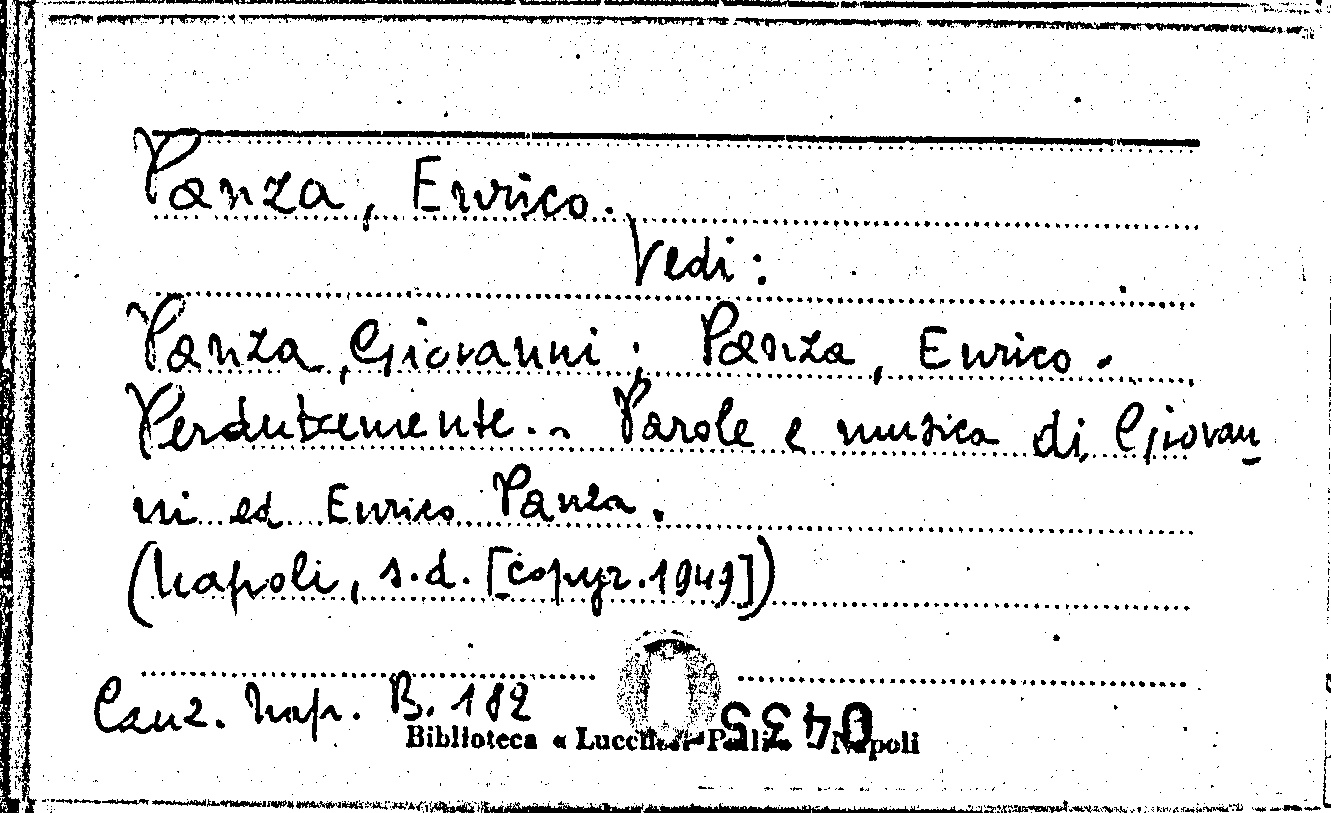 Panza, Enrico.
Vedi:
Panza, Giovanni; Panza, Enrico.
Perdutamente. - Parole e musica di Giovan-
ni ed Enrico Panza.
(Napoli, s.d. [copyr. 1949])
Canz. Nap. B. 182
Biblioteca « Lucchesi-Palli » Napoli